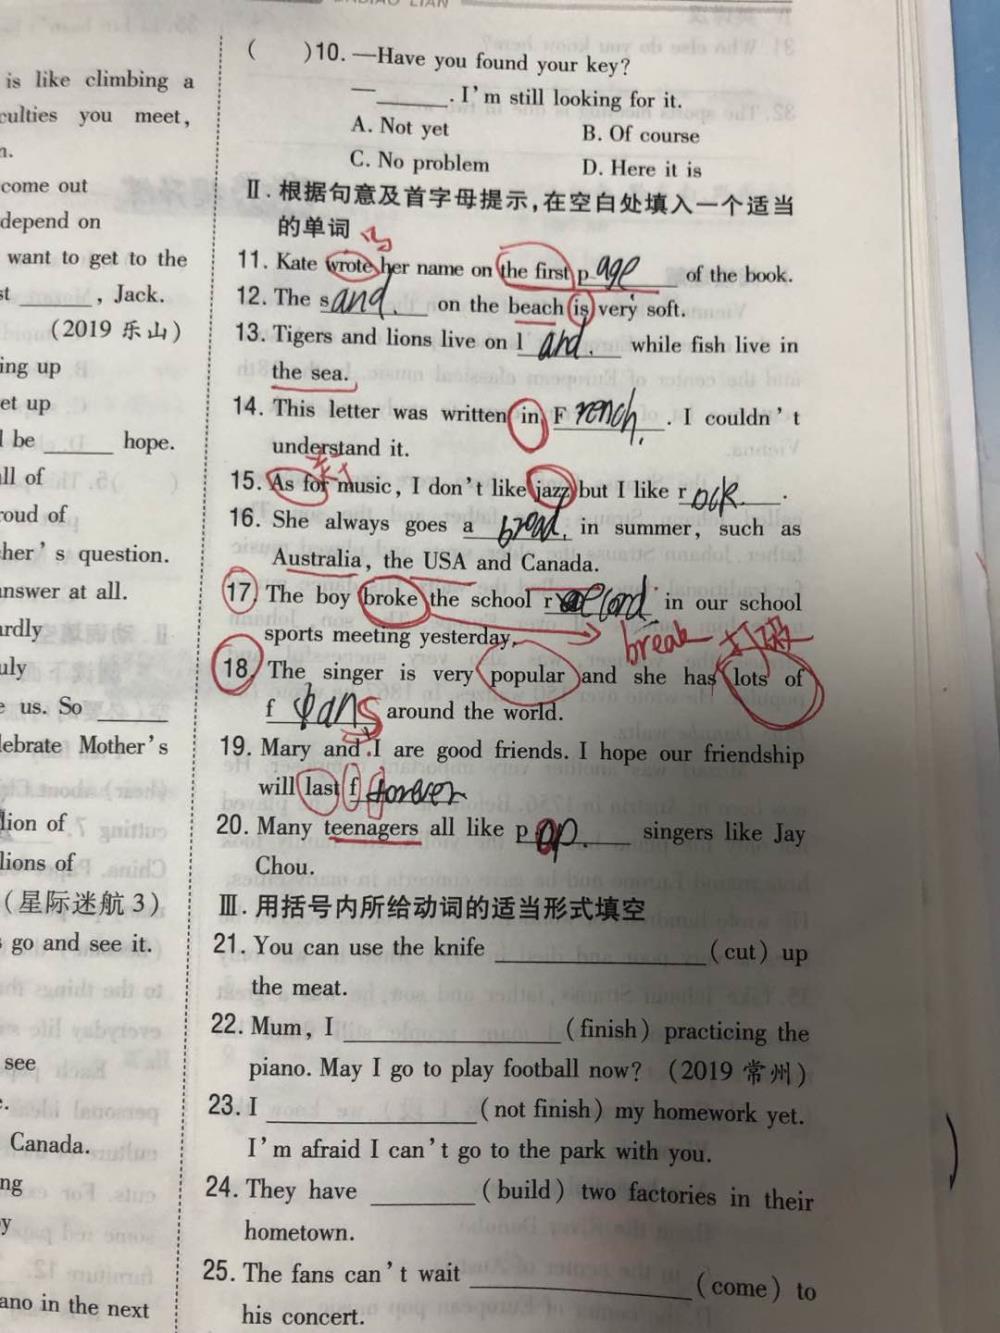 is like climbing a
culties you meet,
come out
depend on
want to get to the
st ______, Jack.
(2019 乐山)
ing up
et up
l be ______ hope.
all of
roud of
her's question.
answer at all.
ardly
uly
e us. So ______
lebrate Mother's
lion of
lions of
(星际迷航 3)
go and see it.
see
Canada.
ng
y
ano in the next
( )10. —Have you found your key?
—______. I'm still looking for it.
A. Not yet B. Of course
C. No problem D. Here it is
Ⅱ. 根据句意及首字母提示,在空白处填入一个适当
的单词
11. Kate wrote her name on the first page of the book.
12. The sand. on the beach is very soft.
13. Tigers and lions live on land. while fish live in
the sea.
14. This letter was written in French. I couldn't
understand it.
15. As for music, I don't like jazz but I like rock.
16. She always goes abroad. in summer, such as
Australia, the USA and Canada.
17. The boy broke the school record in our school
sports meeting yesterday.
break 打破
18. The singer is very popular and she has lots of
f fans around the world.
19. Mary and I are good friends. I hope our friendship
will last f forever
20. Many teenagers all like pop. singers like Jay
Chou.
Ⅲ. 用括号内所给动词的适当形式填空
21. You can use the knife ______ (cut) up
the meat.
22. Mum, I ______ (finish) practicing the
piano. May I go to play football now? (2019 常州)
23. I ______ (not finish) my homework yet.
I'm afraid I can't go to the park with you.
24. They have ______ (build) two factories in their
hometown.
25. The fans can't wait ______ (come) to
his concert.